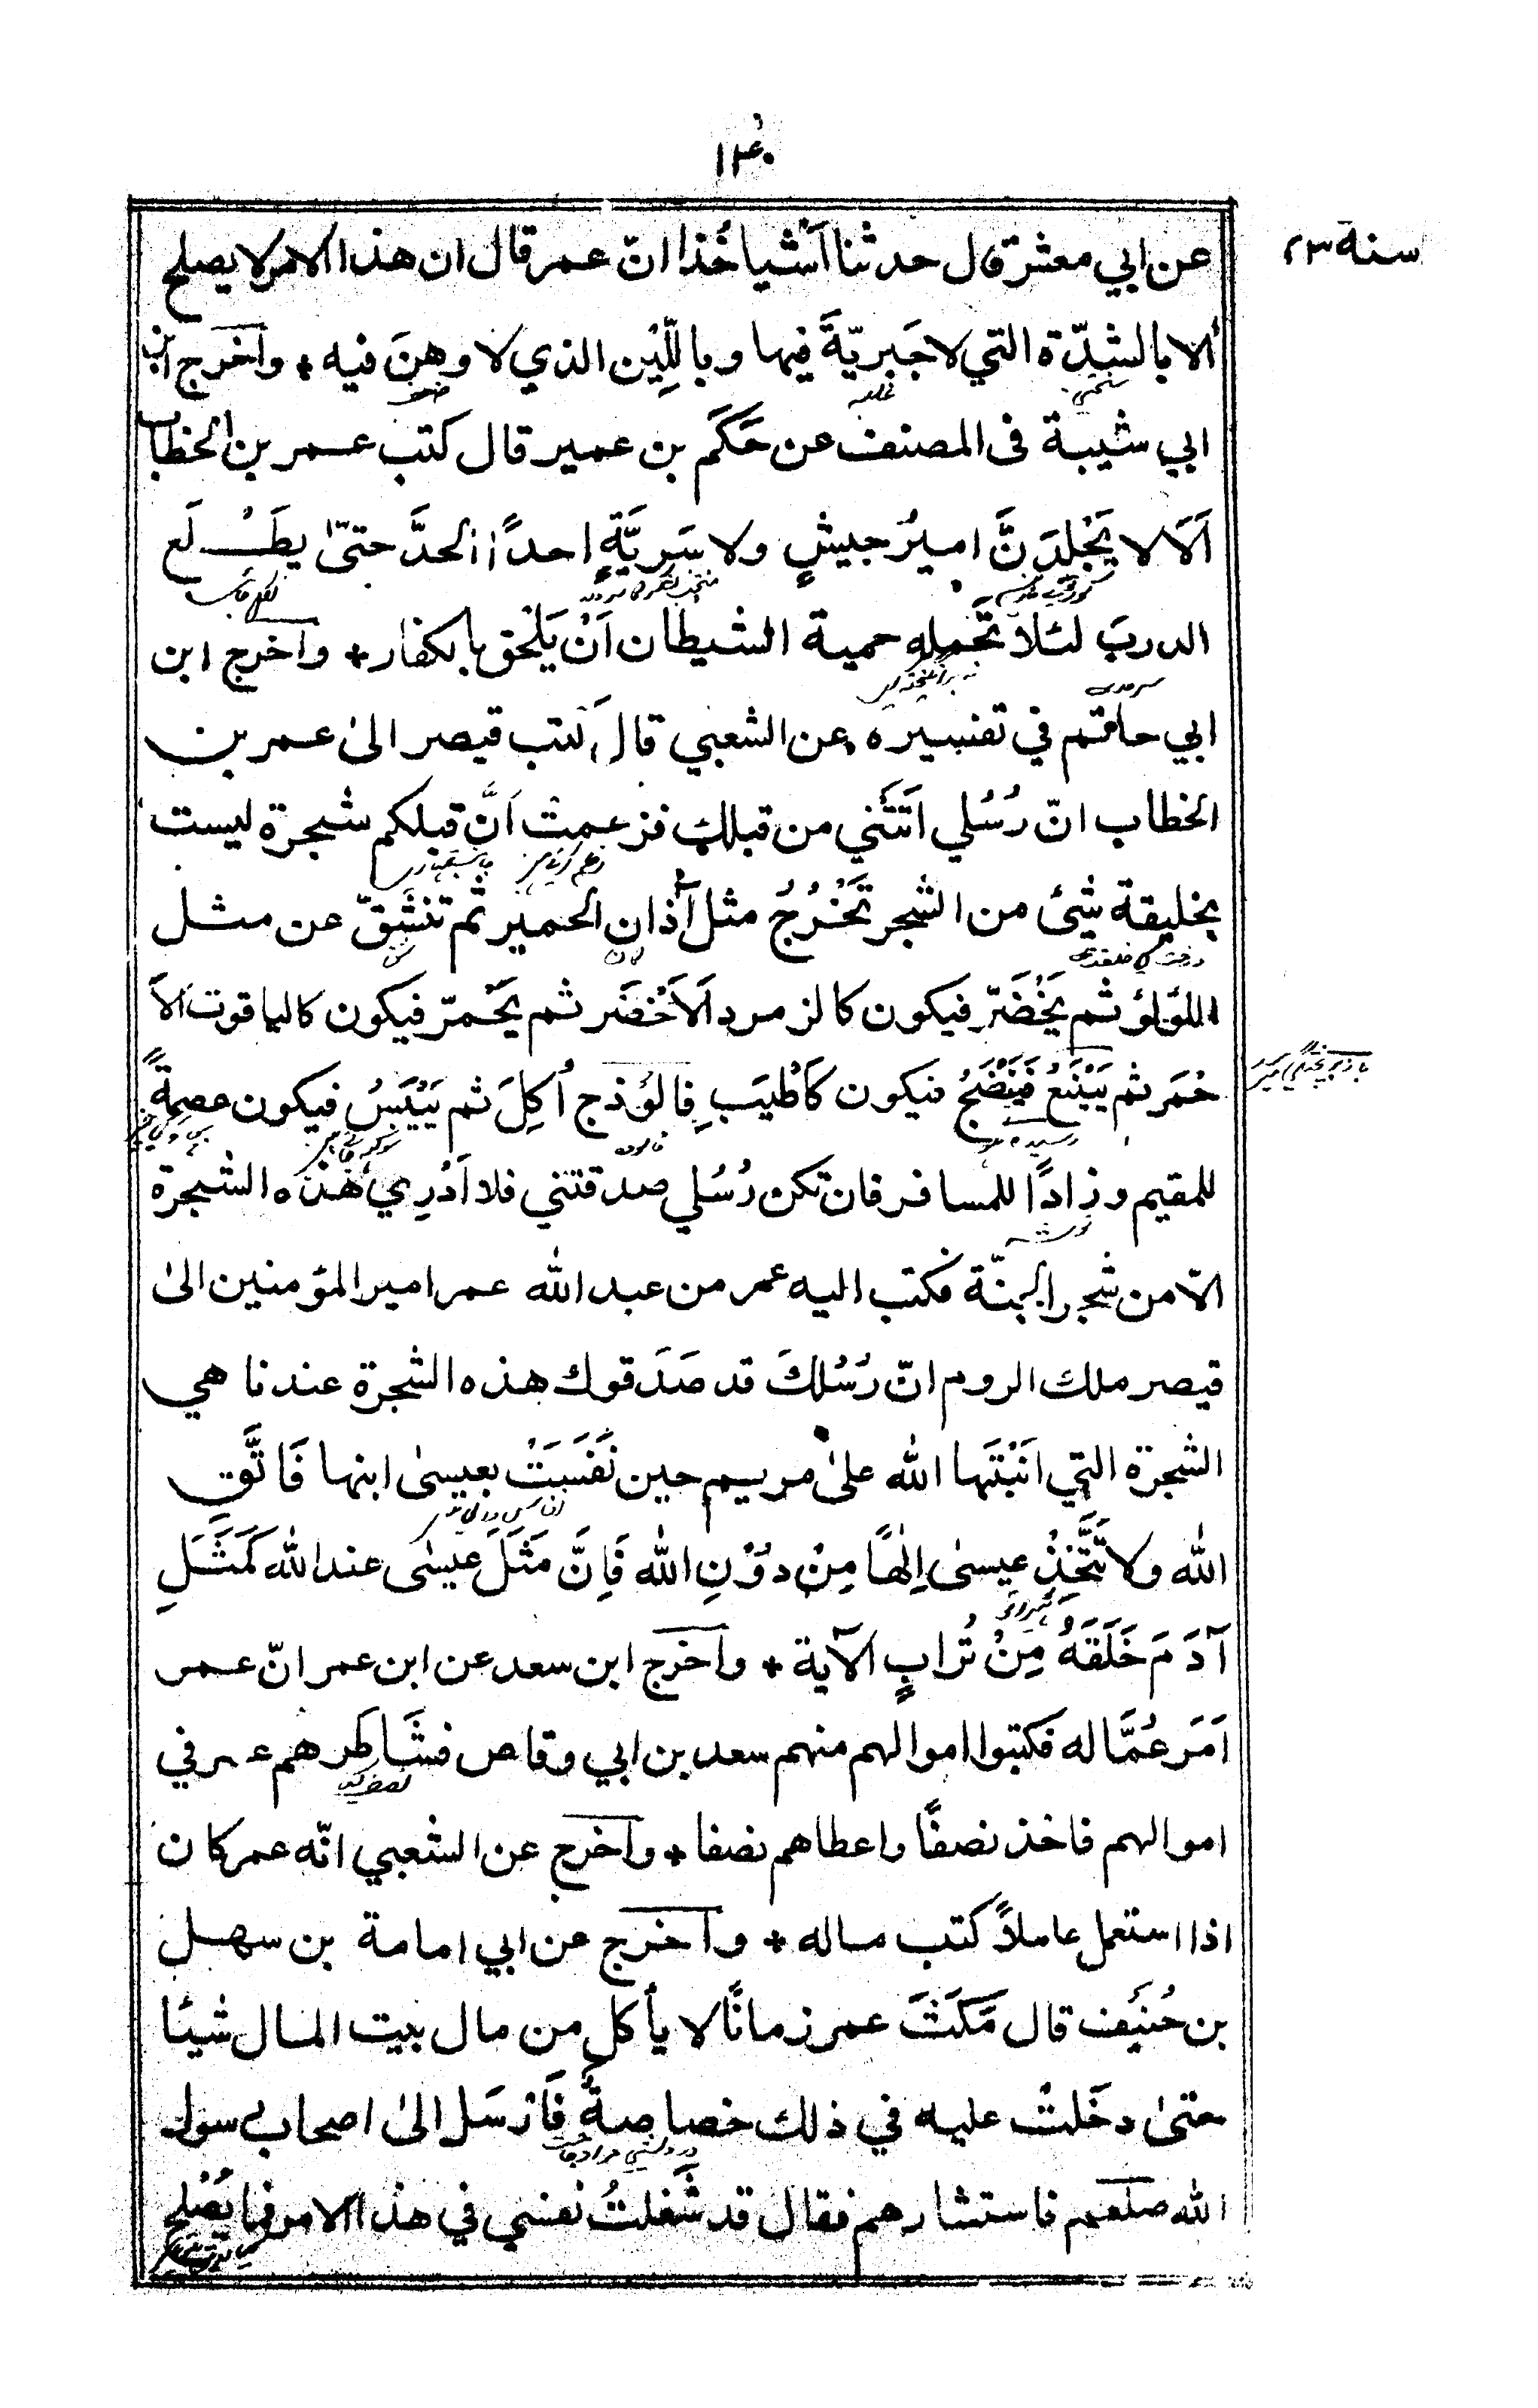 ١٤٠
سنة ٢٣
عن ابي معشر قال حدثنا اَشْياخُنا انّ عمر قال ان هذا الامر لا يصلح
الا بالشِدّة التي لا جَبريّةَ فيها وباللِّيْن الذي لا وهنَ فيه * واخرج ابن
ابي شيبة فى المصنف عن حَكَم بن عمير قال كتب عمر بن الخطاب
اَلَا لا يَجْلِدَنَّ اميرُ جيشٍ ولا سَرِيَّةٍ احداً الحدَّ حتىّ يطَّلَع
الدربَ لئلا تَحْمِله حمية الشيطان اَنْ يَلْحَق بالكفار * واخرج ابن
ابي حاتم في تفسيره عن الشعبي قال كتب قيصر الىٰ عمر بن
الخطاب انّ رُسُلي اتَتْني من قبلك فزعمتْ اَنَّ قبلكم شجرة ليست
بخليقة شئ من الشجر تَخْرُجُ مثل آذان الحمير ثم تنشَقّ عن مثل
اللؤلؤ ثم يَخْضَرّ فيكون كالزمرد اَلاَخْضَر ثم يَحْمرّ فيكون كالياقوت الاَ
حْمَر ثم يَيْنَعُ فَيَنْضَجُ فيكون كَاَطْيَبِ فالُوْذج اُكِلَ ثم يَيْبَسُ فيكون عصمةً
للمقيم وزادًا للمسافر فان تكن رُسُلي صدقتني فلا اَدْرِي هٰذه الشجرة
الّا من شجر الجنّة فكتب اليه عمر من عبد الله عمر امير المؤمنين الىٰ
قيصر ملك الروم انّ رُسُلكَ قد صَدَقوك هذه الشجرة عندنا هي
الشجرة التي انَبْتَها الله علىٰ مريم حين نَفَسَتْ بعيسىٰ ابنها فَاتَّقِ
الله ولا تَتَّخِذْ عيسىٰ اِلٰهًا مِنْ دُوْنِ الله فَاِنَّ مَثَلَ عيسٰى عند الله كَمَثَلِ
آدَمَ خَلَقَهُ مِنْ تُرابٍ الآية * واخرج ابن سعد عن ابن عمر انّ عمر
اَمَرَ عُمَّاله فكتبوا اموالهم منهم سعد بن ابي وقاص فشَاطرهم عمر في
اموالهم فاخذ نصفًا واعطاهم نصفا * واخرج عن الشعبي انّه عمر كان
اذا استعمل عاملاً كتب ماله * واخرج عن ابي امامة بن سهل
بن حُنيَف قال مَكَثَ عمر زمانًا لا يأكل من مال بيت المال شيئا
حتىٰ دخَلتْ عليه في ذلك خصاصةٌ فَاَرْسَل الىٰ اصحاب رسول
الله صلعم فاستشارهم فقال قد شَغلتُ نفسي في هذا الامر فما يُصْلح